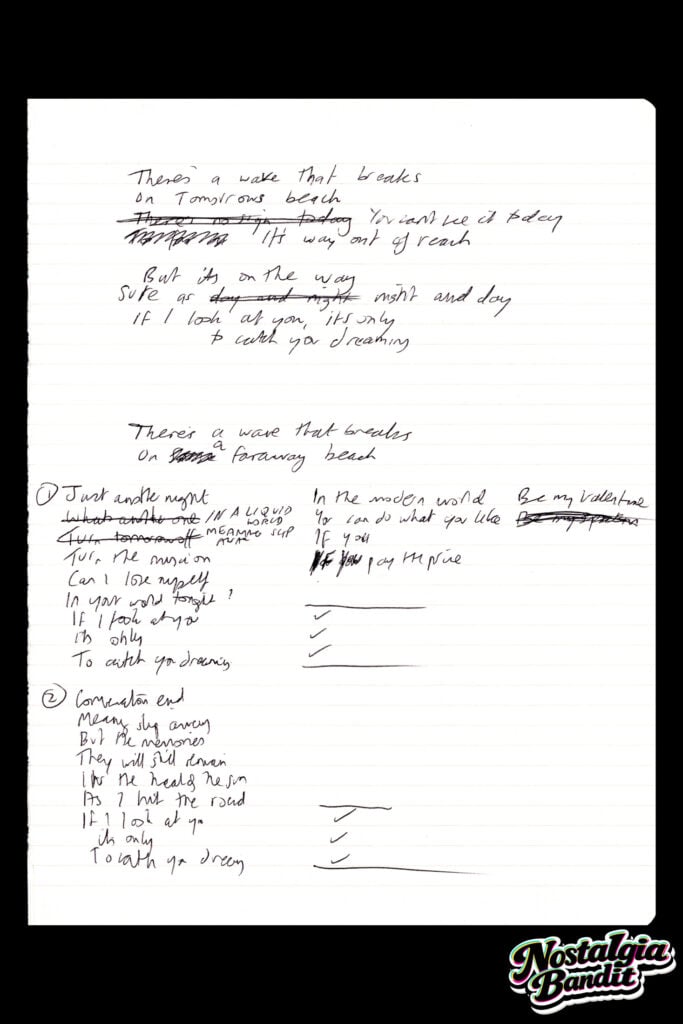 There's a wave that breaks
On Tomorrows beach
There's no sign today You can't see it today
It's way out of reach
But its on the way
Sure as day and night night and day
If I look at you, its only
to catch you dreaming
There's a wave that breaks
On a faraway beach
① Just another night
What's another one IN A LIQUID WORLD
Turn tomorrow off MEANING SLIP AWAY
Turn the music on
Can I lose myself
In your world tonight?
If I look at you
its only
To catch you dreaming
In the modern world
You can do what you like
If you
If you pay the price
Be my Valentine
Be my
② Conversation end
Meaning slip away
But the memories
They will still remain
the heat of the sun
As I hit the road
If I look at you
its only
To catch you dreaming
Nostalgia
Bandit